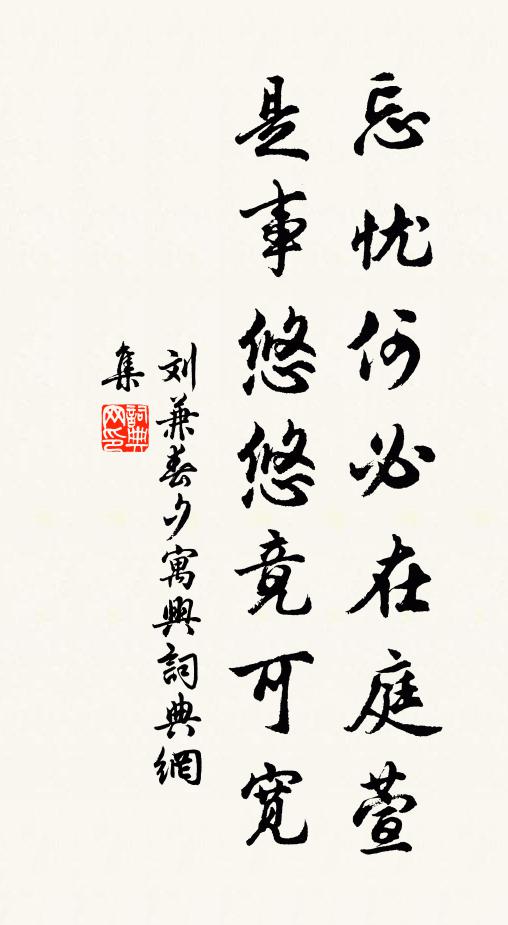 忘忧何必在庭萱
是事悠悠竟可寬
刘兼春夕寓興詞典網
集
詞典网印